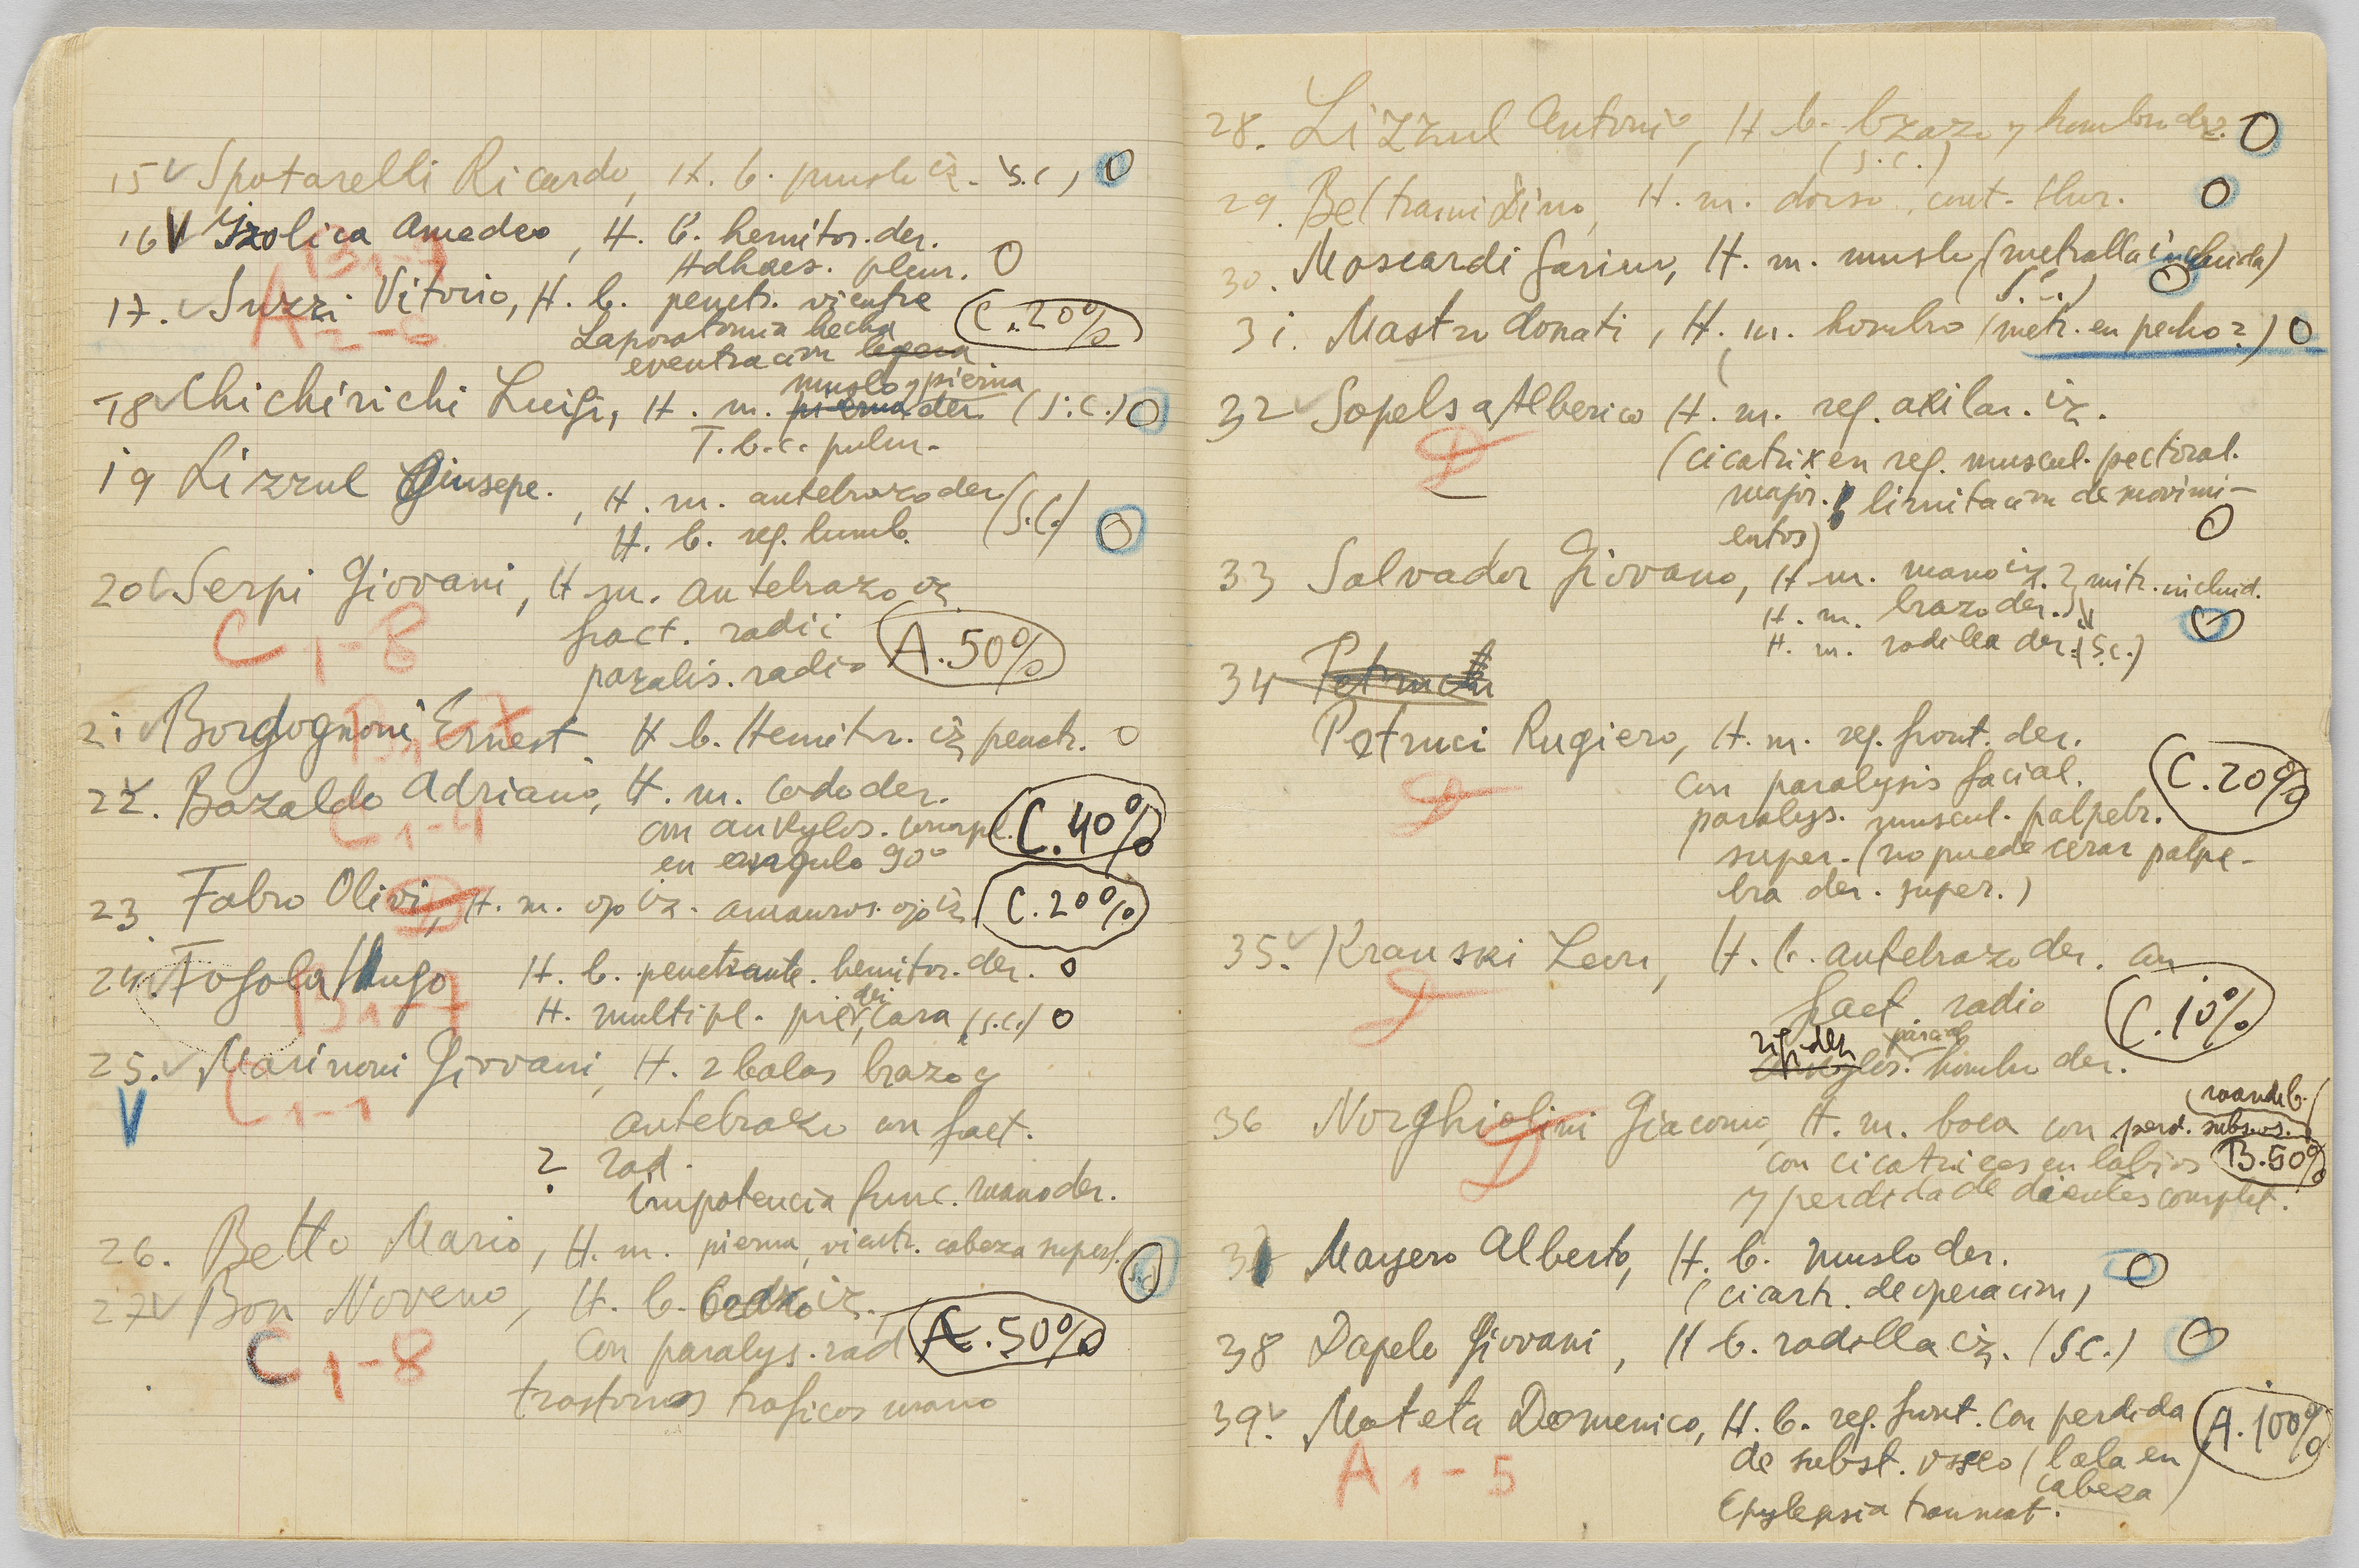 15 Spotarelli Ricardo, H. b. muslo iz. S.C, O
16 V Izolica Amedeo, H. b. hemitor. der.
B1-7
Adhaes. pleur. O
17. Suzzi Vitorio, H. b. penetr. vientre
A 2-6
Laporatomia hecha
C. 20%
eventracion
18 Chichirichi Luigi, H. m. pierna der. (S.C.) O
muslo y pierna
T.b.c. pulm.
19 Lizzul Giusepe., H. m. antebrazo der. (S.C.)
H. b. reg. lumb. O
20 Serpi Giovani, H m. antebrazo iz.
C 1-8
fract. radii
paralis. radio A. 50%
21 Bordognoni Ernest. H b. Hemitr. iz penetr. O
22. Bazaldo Adriano, H. m. codo der.
C 1-4
con ankylos. compl. C. 40%
en angulo 90°
23 Fabro Olivi, H. m. ojo iz. amauros. ojo iz C. 20%
D
24. Fogola Hugo H. b. penetrante. hemitor. der. O
B1-7
H. multipl. pier, cara (S.C.) O
25. Marinoni Giovani, H. 2 balas brazo y
C 1-1
V
antebrazo con fract.
? rad.
impotencia func. mano der.
26. Betto Mario, H. m. pierna, vientr. cabeza superf. S.C
27 Bon Noveno, H. b. brazo iz.
C 1-8
con paralys. rad A. 50%
trastornos troficos mano
28. Lizzul Antonio, H b. brazo y hombro der. O
(S.C.)
29. Beltrami Dino, H. m. dorso, cont. thur. O
30. Moscardi Garino, H. m. muslo, (metralla incluida)
S.C.) O
31. Mastro Donati, H. m. hombro (metr. en pecho?) O
32 Sopelsa Alberico H. m. reg. axilar. iz.
D
(cicatrix en reg. muscul. pectoral.
major. limitacion de movimi-
entos) O
33 Salvador Giovano, H m. mano iz. 2 mitr. includ.
H. m. brazo der.
H. m. rodilla der. (S.C.) O
34 Petruchi
Petruci Rugiero, H. m. reg. front. der.
D
con paralysis facial. C. 20%
paralys. muscul. palpebr.
super. (no puede cerar palpe-
bra der. super.)
35. Kranski Leon, H. b. antebrazo der. con
D
fact. radio C. 10%
rigidez parcial
ankylos. hombro der.
36 Norghiolini Giacomo, H. m. boca con perd. subs. os. mandib.
D
con cicatrices en labios B. 50%
y perdida de dientes complet.
37 Mayero Alberto, H. b. muslo der.
(cicartr. de operacion) O
38 Dapelo Giovani, H b. rodilla iz. (S.C.) O
39. Moteta Domenico, H. b. reg. front. con perdida
A 1-5
de subst. osseo (bala en A. 100%
cabeza)
Epylepsia traumat.